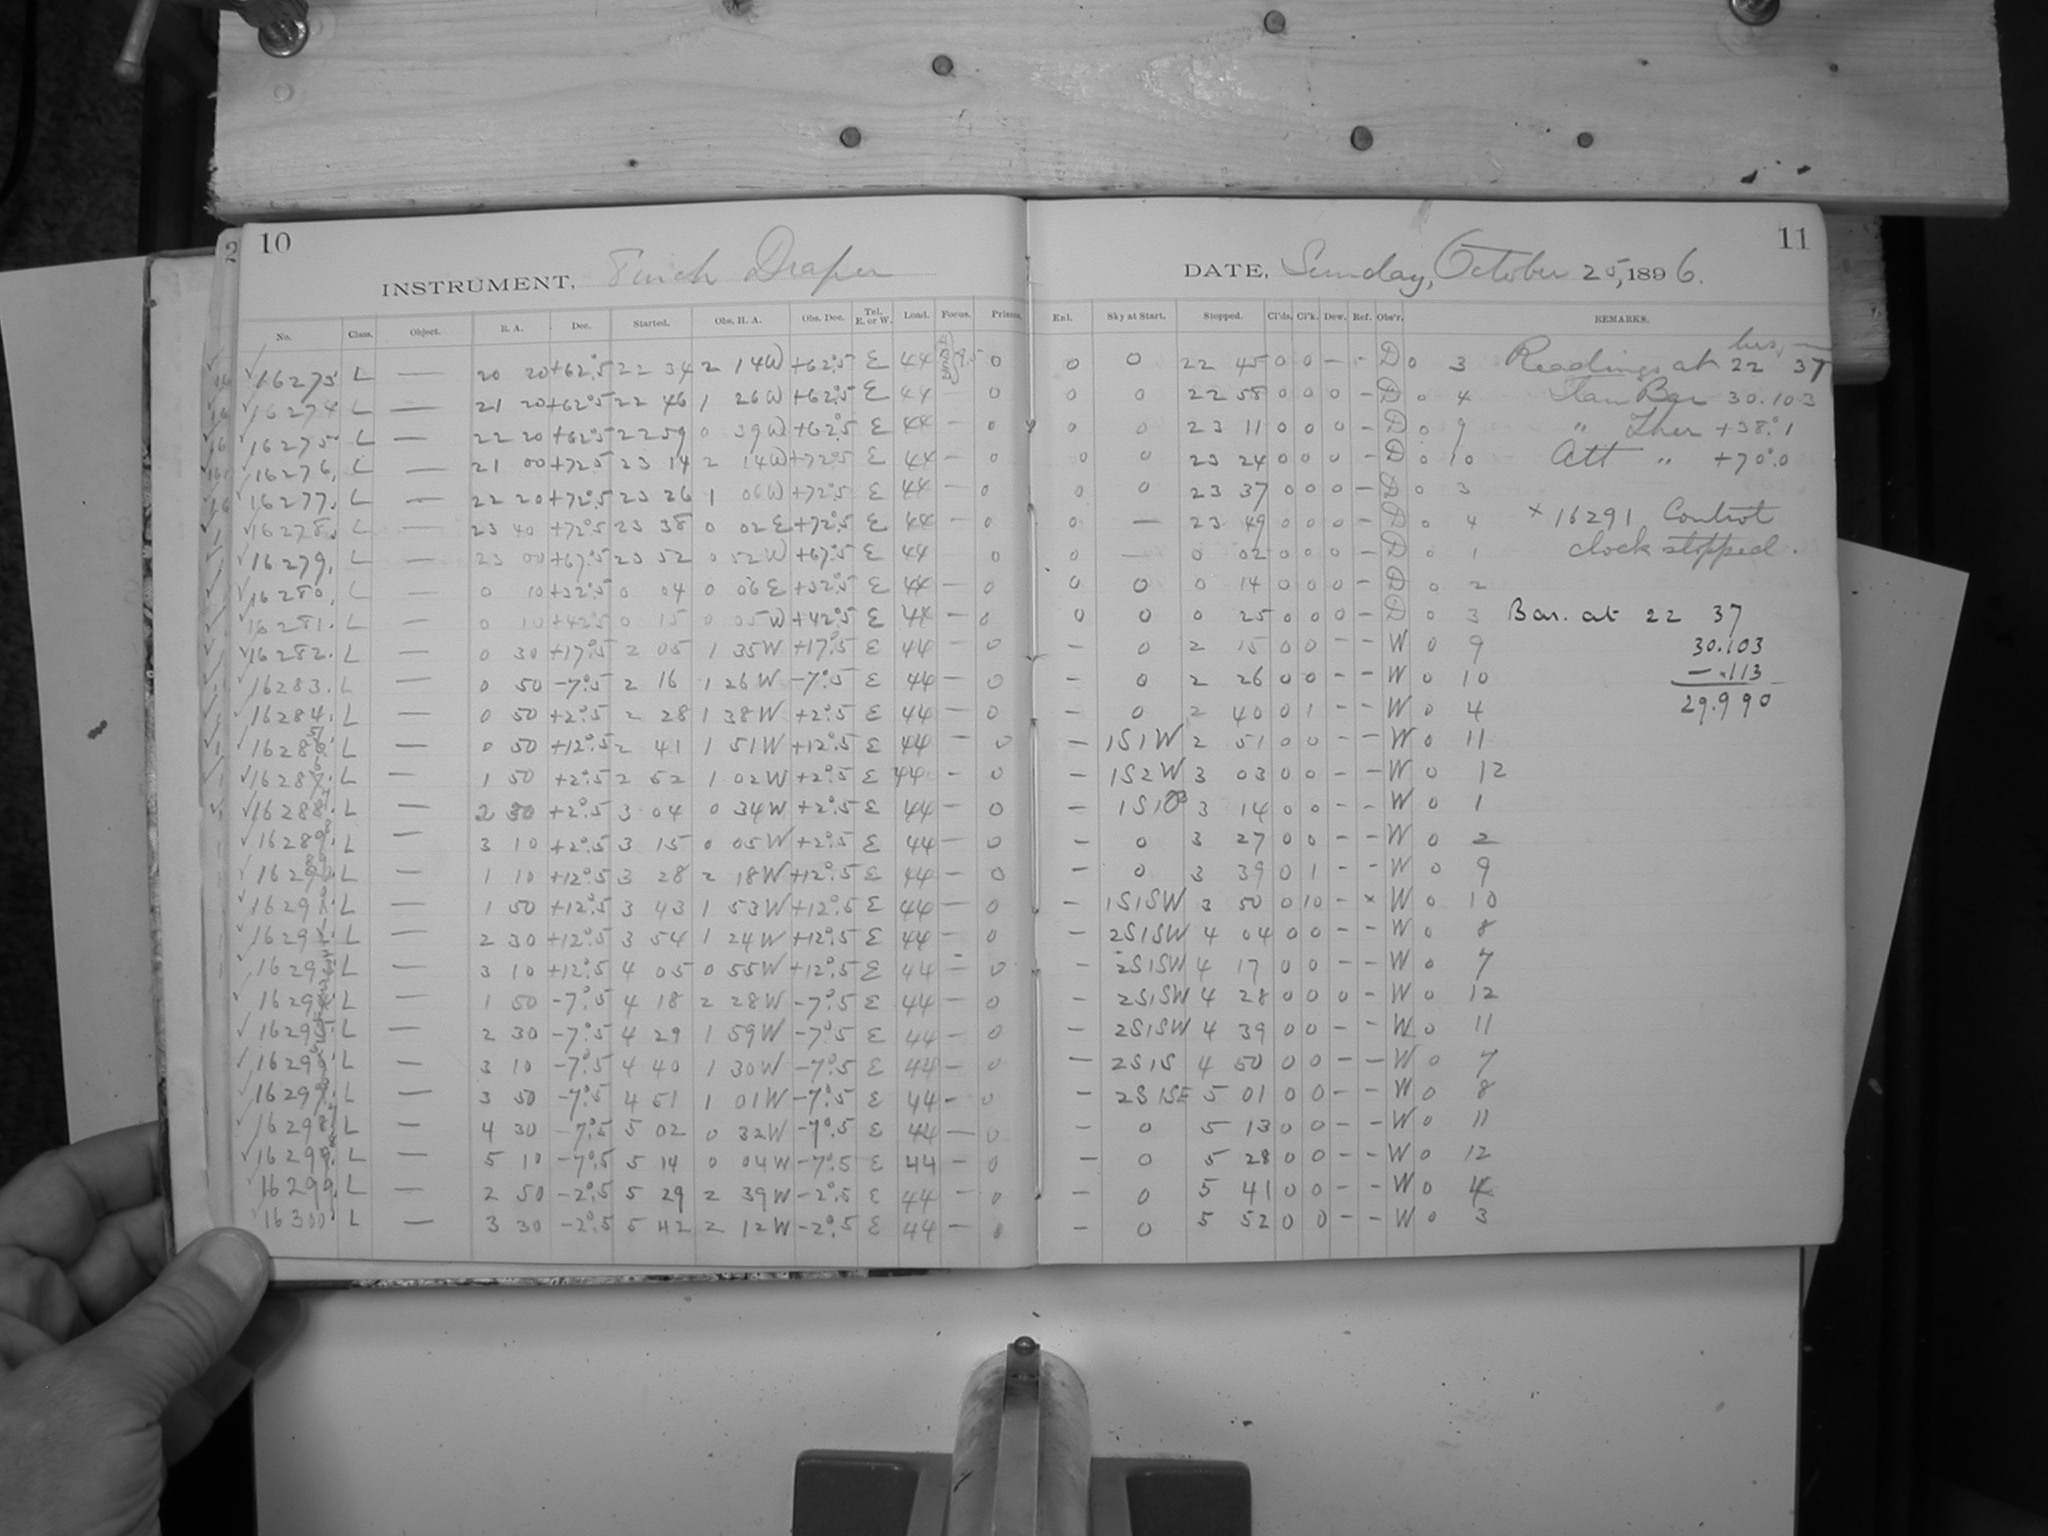 10
INSTRUMENT, 8 inch Draper
DATE, Sunday, October 25, 1896.
11
No. Class. Object. R. A. Dec. Started. Obs. H. A. Obs. Dec. Tel. E. or W. Load. Focus. Prisms. Enl. Sky at Start. Stopped. Cl'ds. Cl'k. Dew. Ref. Obs'r. REMARKS.
16273 L — 20 20 +62°.5 22 34 2 14W +62°.5 E 44 9.5 0 0 0 22 45 0 0 – - D 0 3 Readings at 22 37
16274 L — 21 20 +62°.5 22 46 1 26W +62°.5 E 44 — 0 0 0 22 58 0 0 0 - D 0 4 Stan Bar 30.103
16275 L — 22 20 +62°.5 22 59 0 39W +62°.5 E 44 — 0 0 0 23 11 0 0 0 - D 0 9 " Ther +38°.1
16276. L — 21 00 +72°.5 23 14 2 14W +72°.5 E 44 — 0 0 0 23 24 0 0 0 - D 0 10 Att " +70°.0
16277. L — 22 20 +72°.5 23 26 1 06W +72°.5 E 44 — 0 0 0 23 37 0 0 0 - D 0 3
16278. L — 23 40 +72°.5 23 38 0 02E +72°.5 E 44 — 0 0 — 23 49 0 0 0 - D 0 4 × 16291 Control
16279. L — 23 00 +67°.5 23 52 0 52W +67°.5 E 44 — 0 0 — 0 02 0 0 0 - D 0 1 clock stopped.
16280. L — 0 10 +32°.5 0 04 0 06E +32°.5 E 44 — 0 0 0 0 14 0 0 0 - D 0 2
16281. L — 0 10 +42°.5 0 15 0 05W +42°.5 E 44 — 0 0 0 0 25 0 0 0 - D 0 3 Bar. at 22 37
16282. L — 0 30 +17°.5 2 05 1 35W +17°.5 E 44 — 0 — 0 2 15 0 0 - - W 0 9 30.103
16283. L — 0 50 -7°.5 2 16 1 26W -7°.5 E 44 — 0 — 0 2 26 0 0 - - W 0 10 — .113
16284. L — 0 50 +2°.5 2 28 1 38W +2°.5 E 44 — 0 — 0 2 40 0 1 - - W 0 4 29.990
16285. L — 0 50 +12°.5 2 41 1 51W +12°.5 E 44 - 0 — 1S1W 2 51 0 0 - - W 0 11
16286. L — 1 50 +2°.5 2 52 1 02W +2°.5 E 44 - 0 — 1S2W 3 03 0 0 - - W 0 12
16287. L — 2 30 +2°.5 3 04 0 34W +2°.5 E 44 — 0 — 1S1 3 14 0 0 - - W 0 1
16288. L — 3 10 +2°.5 3 15 0 05W +2°.5 E 44 — 0 — 0 3 27 0 0 - - W 0 2
16289 L — 1 10 +12°.5 3 28 2 18W +12°.5 E 44 — 0 — 0 3 39 0 1 - - W 0 9
1629 L — 1 50 +12°.5 3 43 1 53W +12°.5 E 44 — 0 — 1S1SW 3 50 0 10 - × W 0 10
1629 L — 2 30 +12°.5 3 54 1 24W +12°.5 E 44 — 0 — 2S1SW 4 04 0 0 - - W 0 8
1629 L — 3 10 +12°.5 4 05 0 55W +12°.5 E 44 — 0 — 2S1SW 4 17 0 0 - - W 0 7
1629 L — 1 50 -7°.5 4 18 2 28W -7°.5 E 44 — 0 — 2S1SW 4 28 0 0 0 - W 0 12
1629 L — 2 30 -7°.5 4 29 1 59W -7°.5 E 44 — 0 — 2S1SW 4 39 0 0 - - W 0 11
1629 L — 3 10 -7°.5 4 40 1 30W -7°.5 E 44 — 0 — 2S1S 4 50 0 0 - - W 0 7
1629 L — 3 50 -7°.5 4 51 1 01W -7°.5 E 44 - 0 — 2S1SE 5 01 0 0 - - W 0 8
1629 L — 4 30 -7°.5 5 02 0 32W -7°.5 E 44 — 0 — 0 5 13 0 0 - - W 0 11
1629 L — 5 10 -7°.5 5 14 0 04W -7°.5 E 44 — 0 — 0 5 28 0 0 - - W 0 12
16299. L — 2 50 -2°.5 5 29 2 39W -2°.5 E 44 — 0 — 0 5 41 0 0 - - W 0 4
16300. L — 3 30 -2°.5 5 42 2 12W -2°.5 E 44 — 0 — 0 5 52 0 0 - - W 0 3